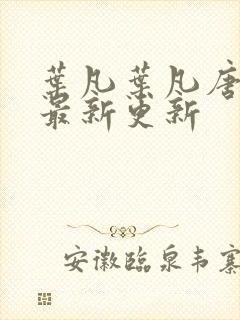 葉凡葉凡唐
最新更新
安徽臨泉韦寨